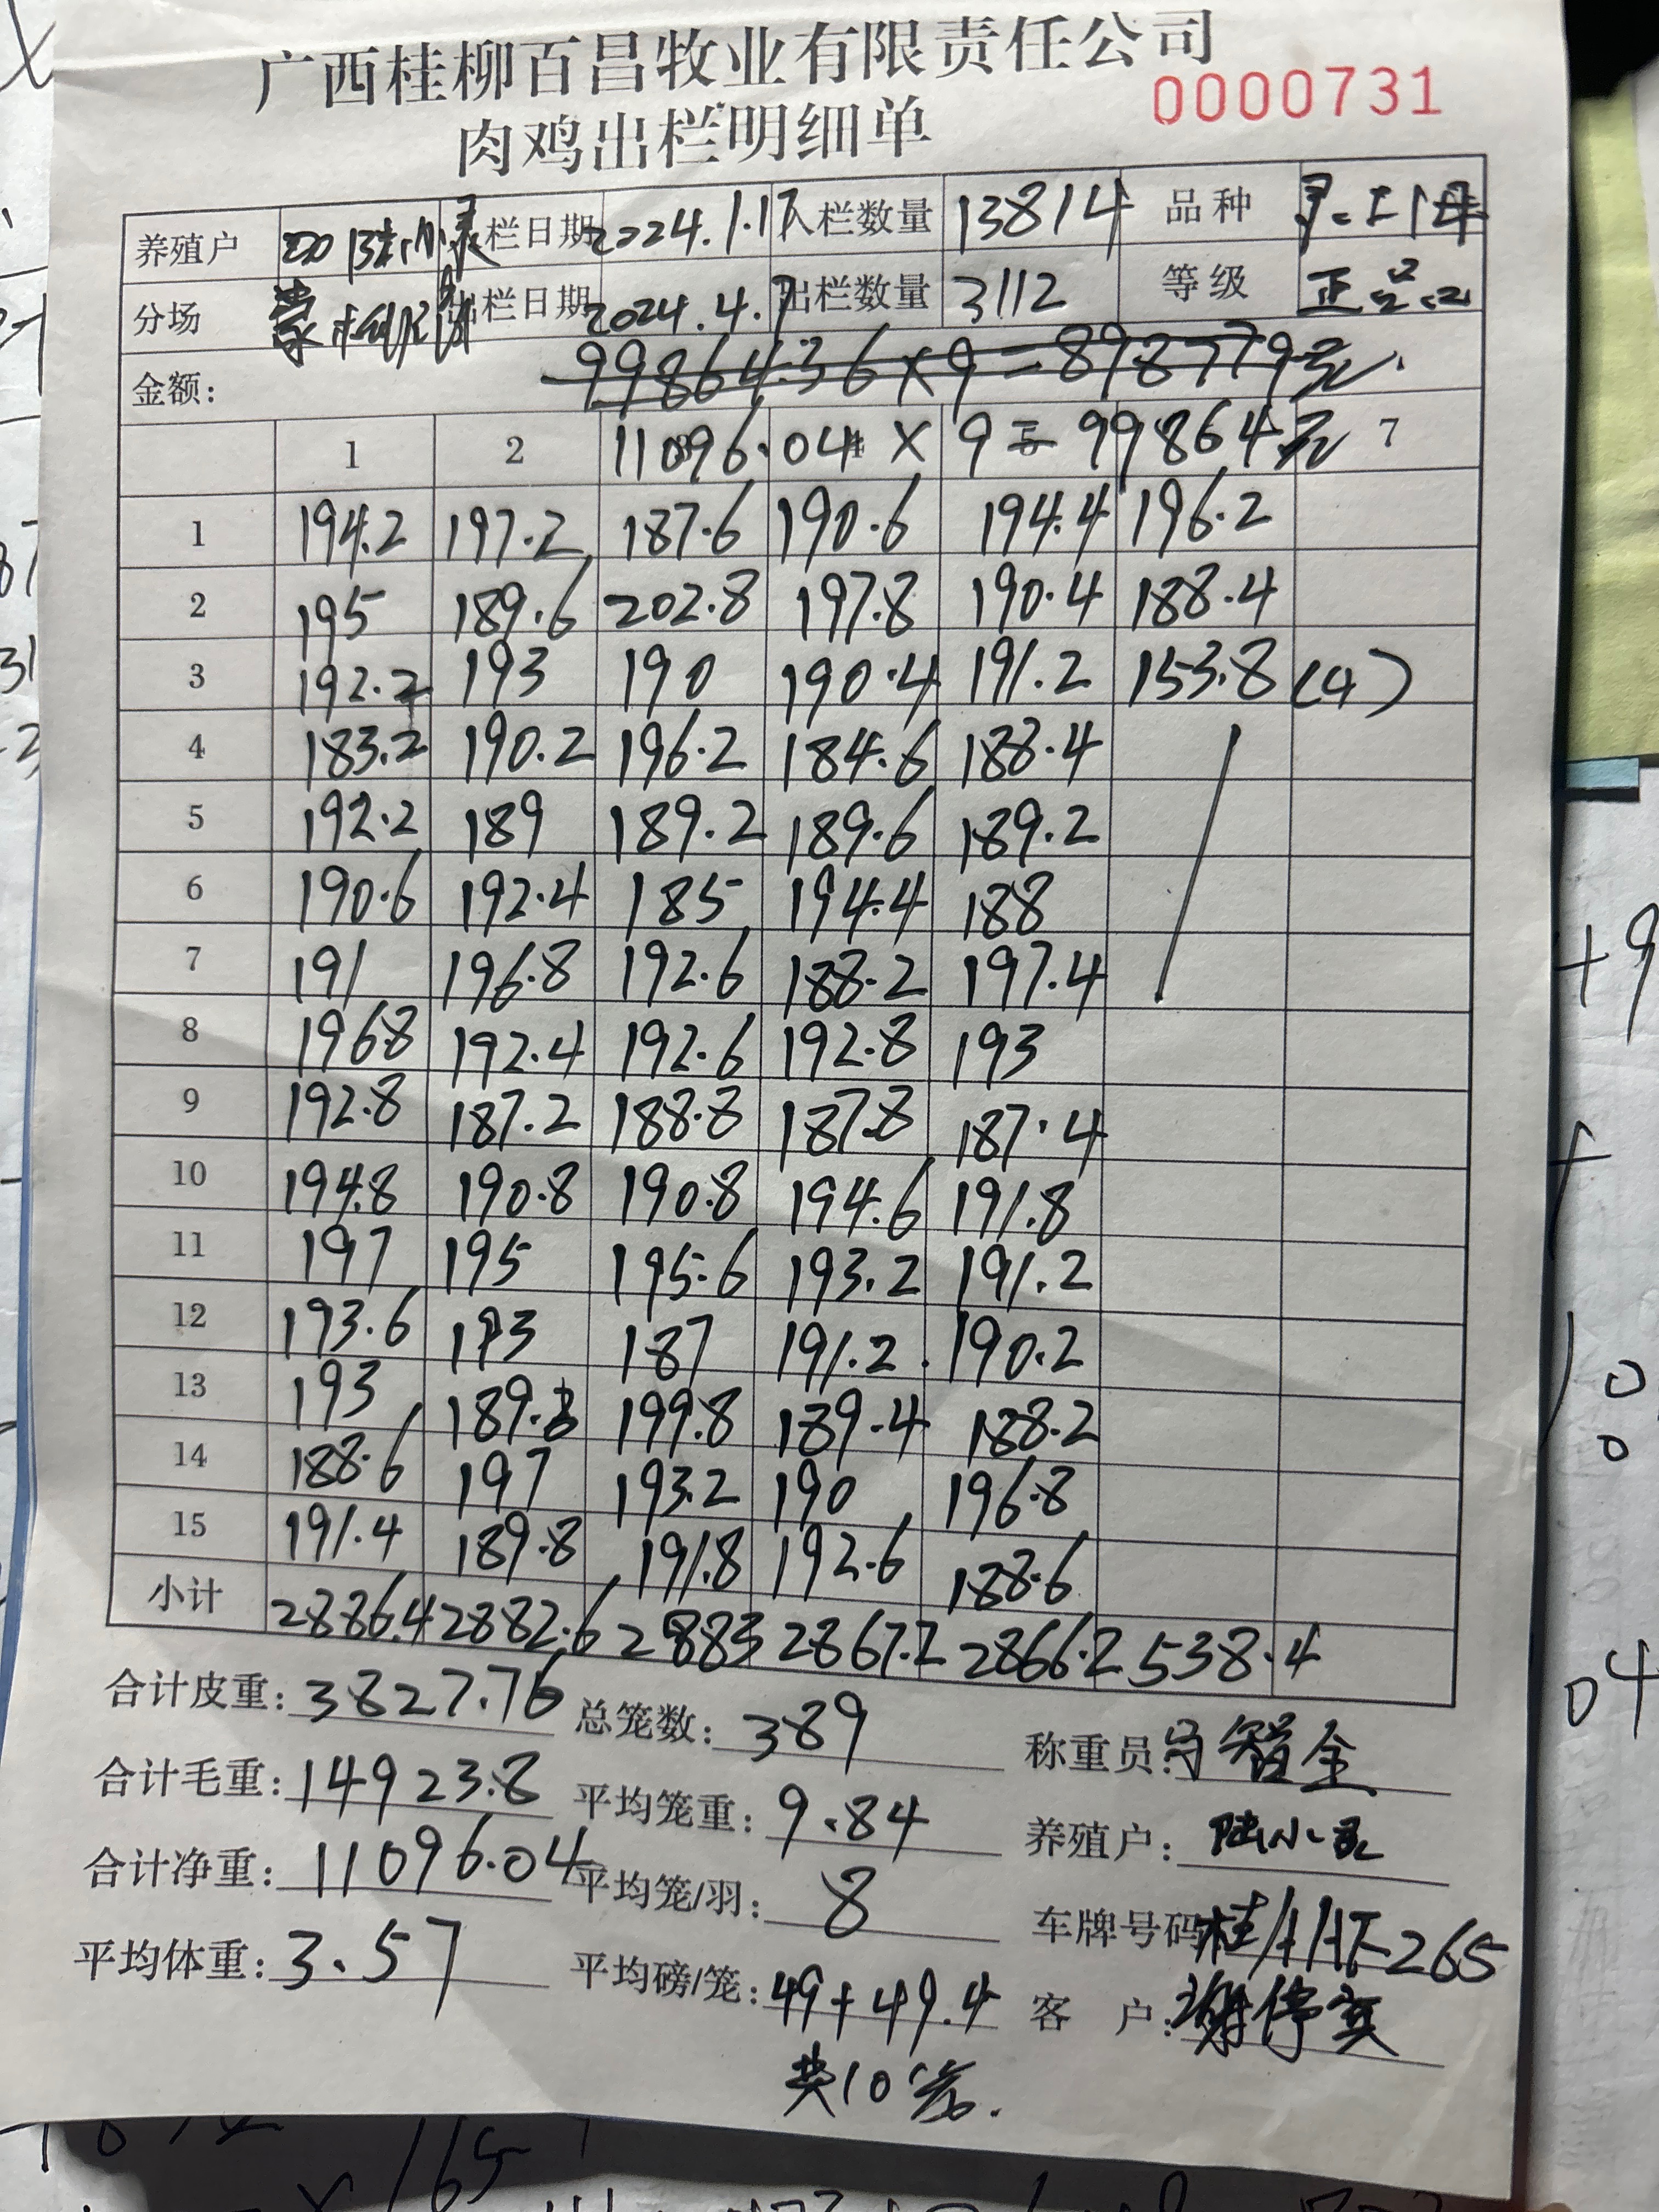 广西桂柳百昌牧业有限责任公司
0000731
肉鸡出栏明细单
养殖户 入栏日期 2024.1.17 入栏数量 13814 品种
分场 出栏日期 2024.4.7 出栏数量 3112 等级 正品
金额: 99864.36×9=898779元
1 2 11096.04 × 9 = 99864元 7
1 194.2 197.2 187.6 190.6 194.4 196.2
2 195 189.6 202.8 197.8 190.4 188.4
3 192.2 193 190 190.4 191.2 153.8 (4)
4 183.2 190.2 196.2 184.6 188.4
5 192.2 189 189.2 189.6 189.2
6 190.6 192.4 185 194.4 188
7 191 196.8 192.6 188.2 197.4
8 196.8 192.4 192.6 192.8 193
9 192.8 187.2 188.8 187.8 187.4
10 194.8 190.8 190.8 194.6 191.8
11 197 195 195.6 193.2 191.2
12 193.6 193 187 191.2 190.2
13 193 189.8 199.8 189.4 188.2
14 188.6 197 193.2 190 196.8
15 191.4 189.8 191.8 192.6 188.6
小计 2886.4 2882.6 2883 2867.2 2866.2 538.4
合计皮重: 3827.76 总笼数: 389 称重员: 智全
合计毛重: 14923.8 平均笼重: 9.84 养殖户: 陆小灵
合计净重: 11096.04 平均笼/羽: 8 车牌号码: 桂 265
平均体重: 3.57 平均磅/笼: 49+49.4 客 户: 谢停
共10笼.